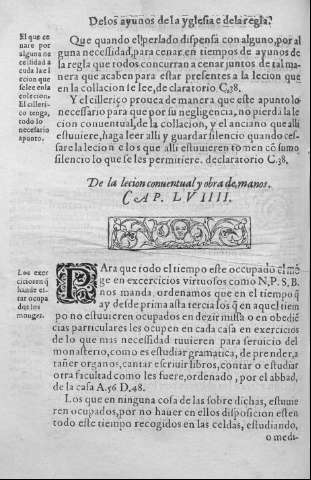 De los ayunos de la yglesia e dela regla?
El que ce
nare por
alguna ne
cesidad á
cuda la e l
ecion que
se lee en la
colecion.
El cilleri-
co tenga,
todo lo
necesario
apunto.
Que quando el perlado dispensa con alguno, por al
guna necessidad, para cenar, en tiempos de ayunos de
la regla que todos concurran a cenar juntos de tal ma-
nera que acaben para estar presentes a la lecion que
en la collacion se lee, de claratorio C,38.
Y el cillerico prouea de manera que este apunto lo
necessario para que por su negligencia, no pierda la le
cion conuentual, de la collacion, y el anciano que alli
estuuiere, haga leer alli y guardar silencio quando ces-
sare la lecion e los que alli estuuieren tomen cō sumo
silencio lo que se les permitiere. declaratorio C.38.
De la lecion conuentual y obra de, manos.
CAP. LVIIII.
Los exer
cicios en q̄
hande es-
tar ocupa
dos los
monges.
PAra que todo el tiempo este occupado el mō
ge en excercicios virtuosos como N.P.S.B.
nos manda, ordenamos que en el tiempo q̄
ay desde prima asta tercia los q̄ en aquel tiem
po no estuuieren ocupados en dezir missa o en obediē
cias particulares les ocupen en cada casa en exercicios
de lo que mas necessidad tuuieren para seruicio del
monasterio, como es estudiar gramatica, de prender, a
tañer organos, cantar escriuir libros, contar o estudiar
otra facultad como les fuere, ordenado, por el abbad,
de la casa A.56 D.48.
Los que en ninguna cosa de las sobre dichas, estuuie
ren ocupados, por no hauer en ellos disposicion esten
todo este tiempo recogidos en las celdas, estudiando,
o medi-